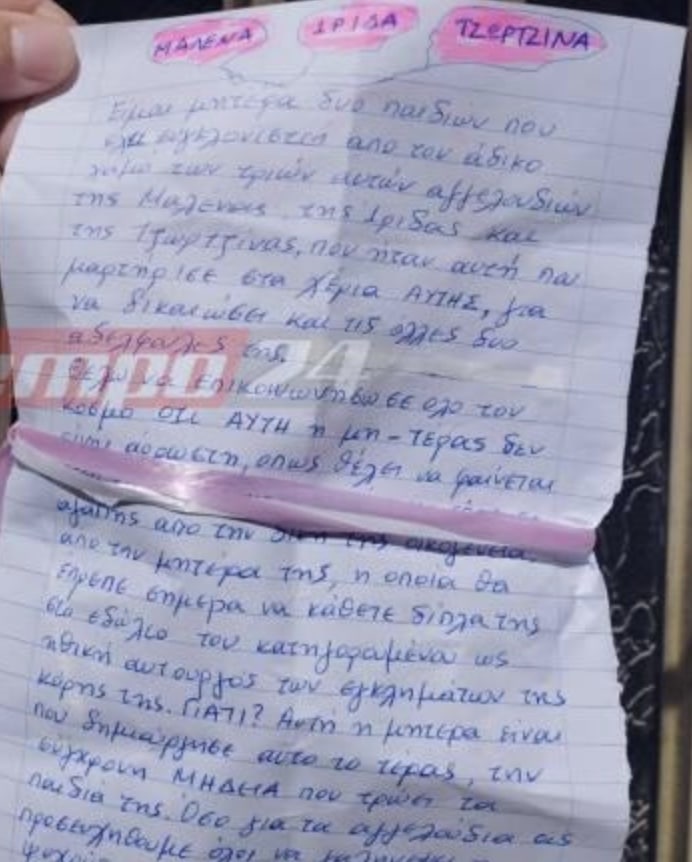 ΜΑΛΕΝΑ ΙΡΙΔΑ ΤΖΩΡΤΖΙΝΑ
Είμαι μητέρα δυο παιδιών που
έχω συγκλονιστεί από τον άδικο
χαμό των τριών αυτών αγγελουδιών
της Μαλένας της Ίριδας και
της Τζωρτζίνας, που ήταν αυτή που
μαρτήρισε στα χέρια ΑΥΤΗΣ, για
να δικαιώσει και τις άλλες δυο
αδελφούλες της.
Θέλω να επικοινωνήσω σε όλο τον
κόσμο ότι ΑΥΤΗ η μη-τέρας δεν
είναι άρρωστη, όπως θέλει να φαίνεται
αγάπης από την δική της οικογένεια.
από την μητέρα της, η οποία θα
έπρεπε σήμερα να κάθετε δίπλα της
στο εδώλιο του κατηγοραμένου ως
ηθική αυτουργός των εγκλημάτων της
κόρης της. ΓΙΑΤΙ? Αυτή η μητέρα είναι
που δημιούργησε αυτό το τέρας, την
σύγχρονη ΜΗΔΕΙΑ που τρώει τα
παιδιά της. Όσο για τα αγγελούδια ας
προσευχηθούμε όλοι να
tempo24